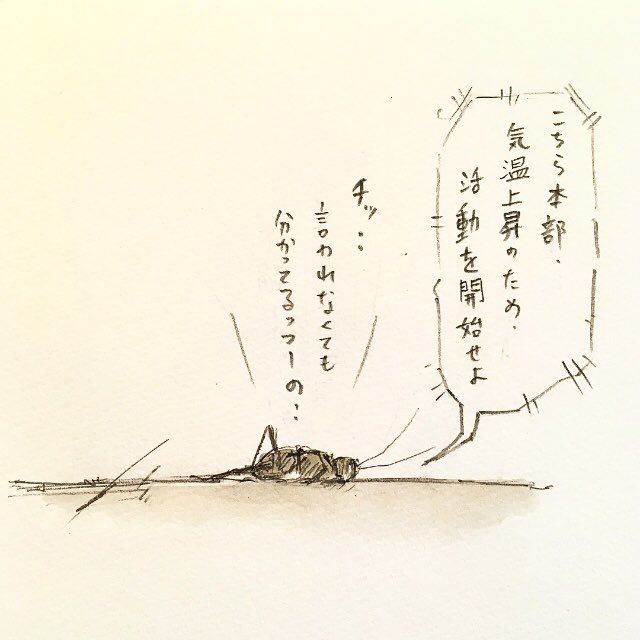 こちら本部、
気温上昇のため、
活動を開始せよ
チッ…
言われなくても
分かってるっつーの…